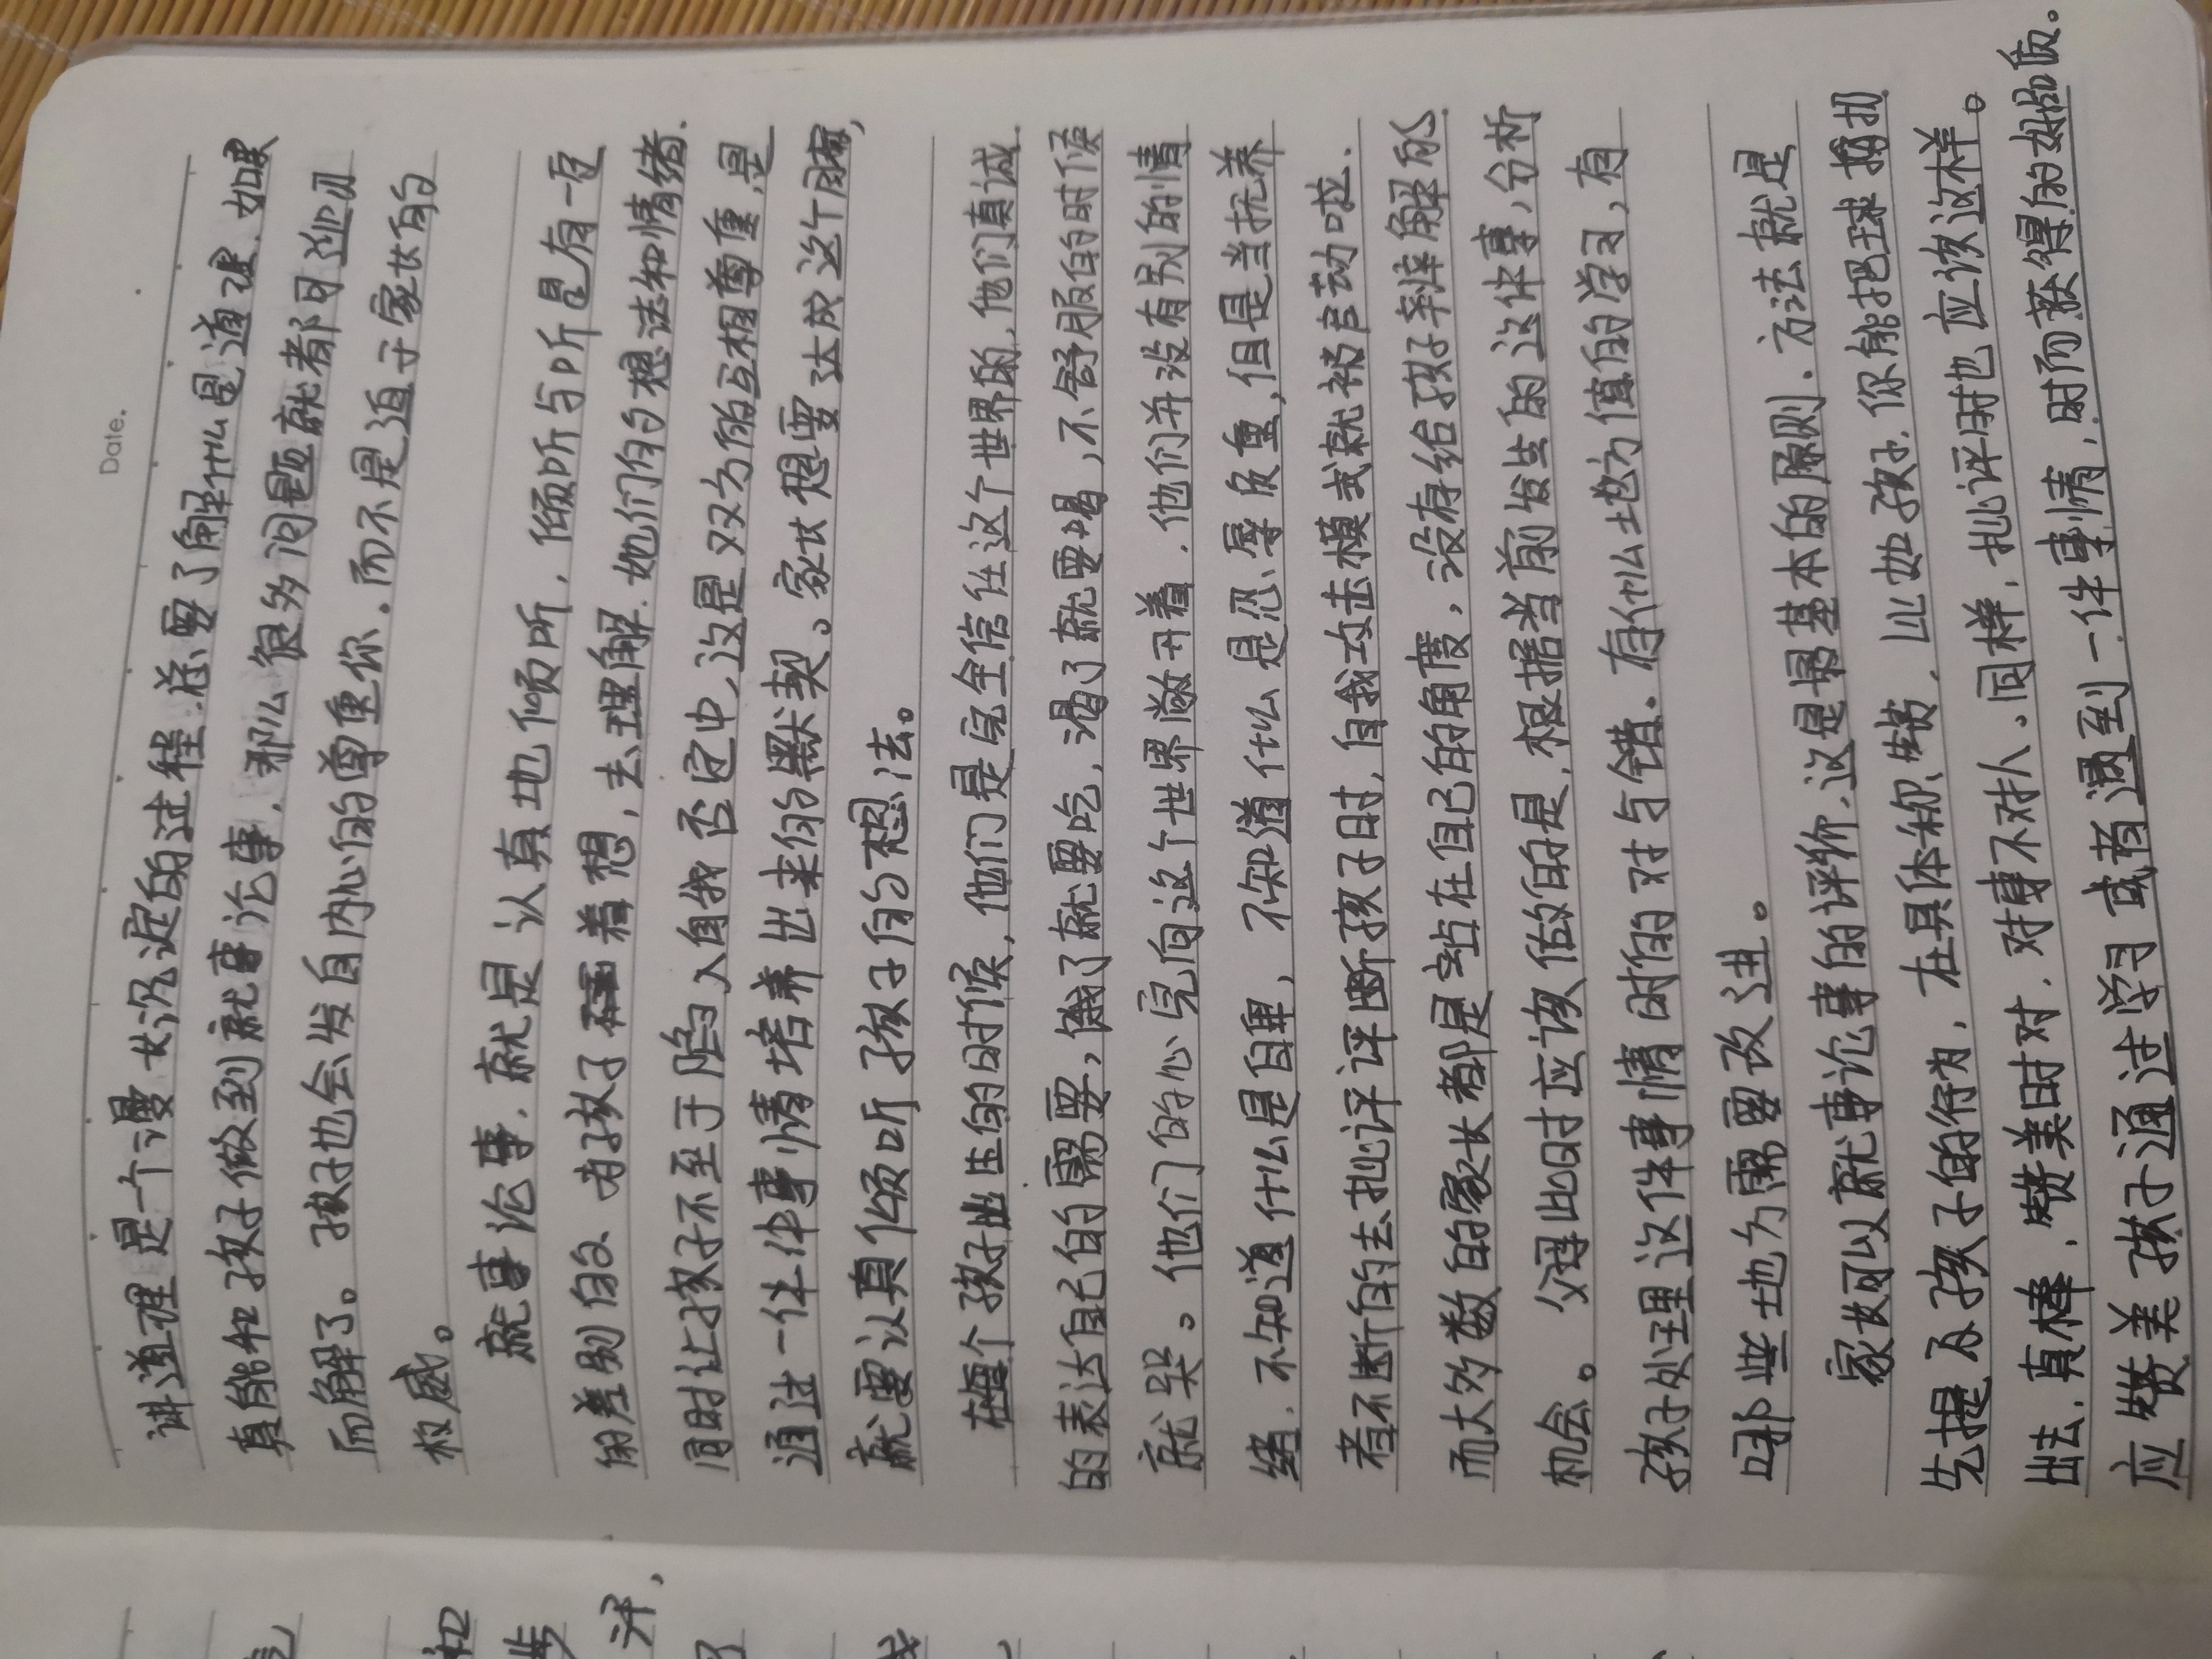 Date.
讲道理是一个漫长沉淀的过程.首要了解什么是道理.如果
真能和孩子做到就事论事,那么很多问题就都可迎刃
而解了。孩子也会发自内心的尊重你.而不是迫于家长的
权威。
就事论事.就是认真地倾听.倾听与听是有一定
的差别的.为孩子着想,去理解.她们的想法和情绪.
同时让孩子不至于陷入自我否定中,这是双方的互相尊重,是
通过一件件事情培养出来的默契。家长想要达成这个,
就要认真倾听孩子的想法。
在每个孩子出生的时候,他们是完全信任这个世界的,他们真诚
的表达自己的需要,饿了就要吃,渴了就要喝,不舒服的时候
就哭。他们的心是向这个世界敞开着.他们并没有别的情
绪.不知道什么是自卑,不知道什么是忍辱负重,但是当抚养
者不断的去批评评断孩子时,自我攻击模式就被启动啦.
而大多数的家长都是站在自己的角度,没有给孩子辩解的
机会。父母此时应该做的是.根据当前发生的这件事,分析
孩子处理这件事情时的对与错.有什么地方值的学习,有
哪些地方需要改进。
家长可以就事论事的评价.这是最基本的原则.方法就是
先提及孩子的行为,在具体称赞.比如:孩子.你能把球扔
出去.真棒.赞美时对.对事不对人.同样.批评时也应该这样。
应赞美孩子通过学习或者遇到一件事情,时而获得的好品质。